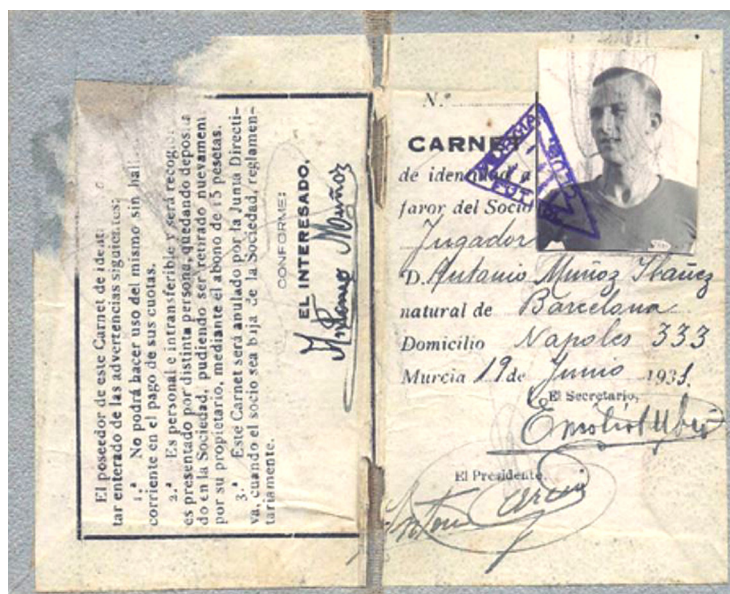 El poseedor de este Carnet de ident.
tar enterado de las advertencias siguientes:
1.ª No podrá hacer uso del mismo sin hall
corriente en el pago de sus cuotas.
2.ª Es personal e intransferible y será recogi
es presentado por distinta persona, quedando deposita
do en la Sociedad, pudiendo ser retirado nuevament
por su propietario, mediante el abono de 15 pesetas.
3.ª Este Carnet será anulado por la Junta Directi-
va, cuando el socio sea baja de la Sociedad, reglamen-
tariamente.
CONFORME:
EL INTERESADO,
Antonio Muñoz
N.º
CARNET
de identidad a
favor del Socio
Jugador
D. Antonio Muñoz Ibañez
natural de Barcelona
Domicilio Napoles 333
Murcia 19 de Junio 1931.
El Secretario,
El Presidente,
Antonio
MURCIA